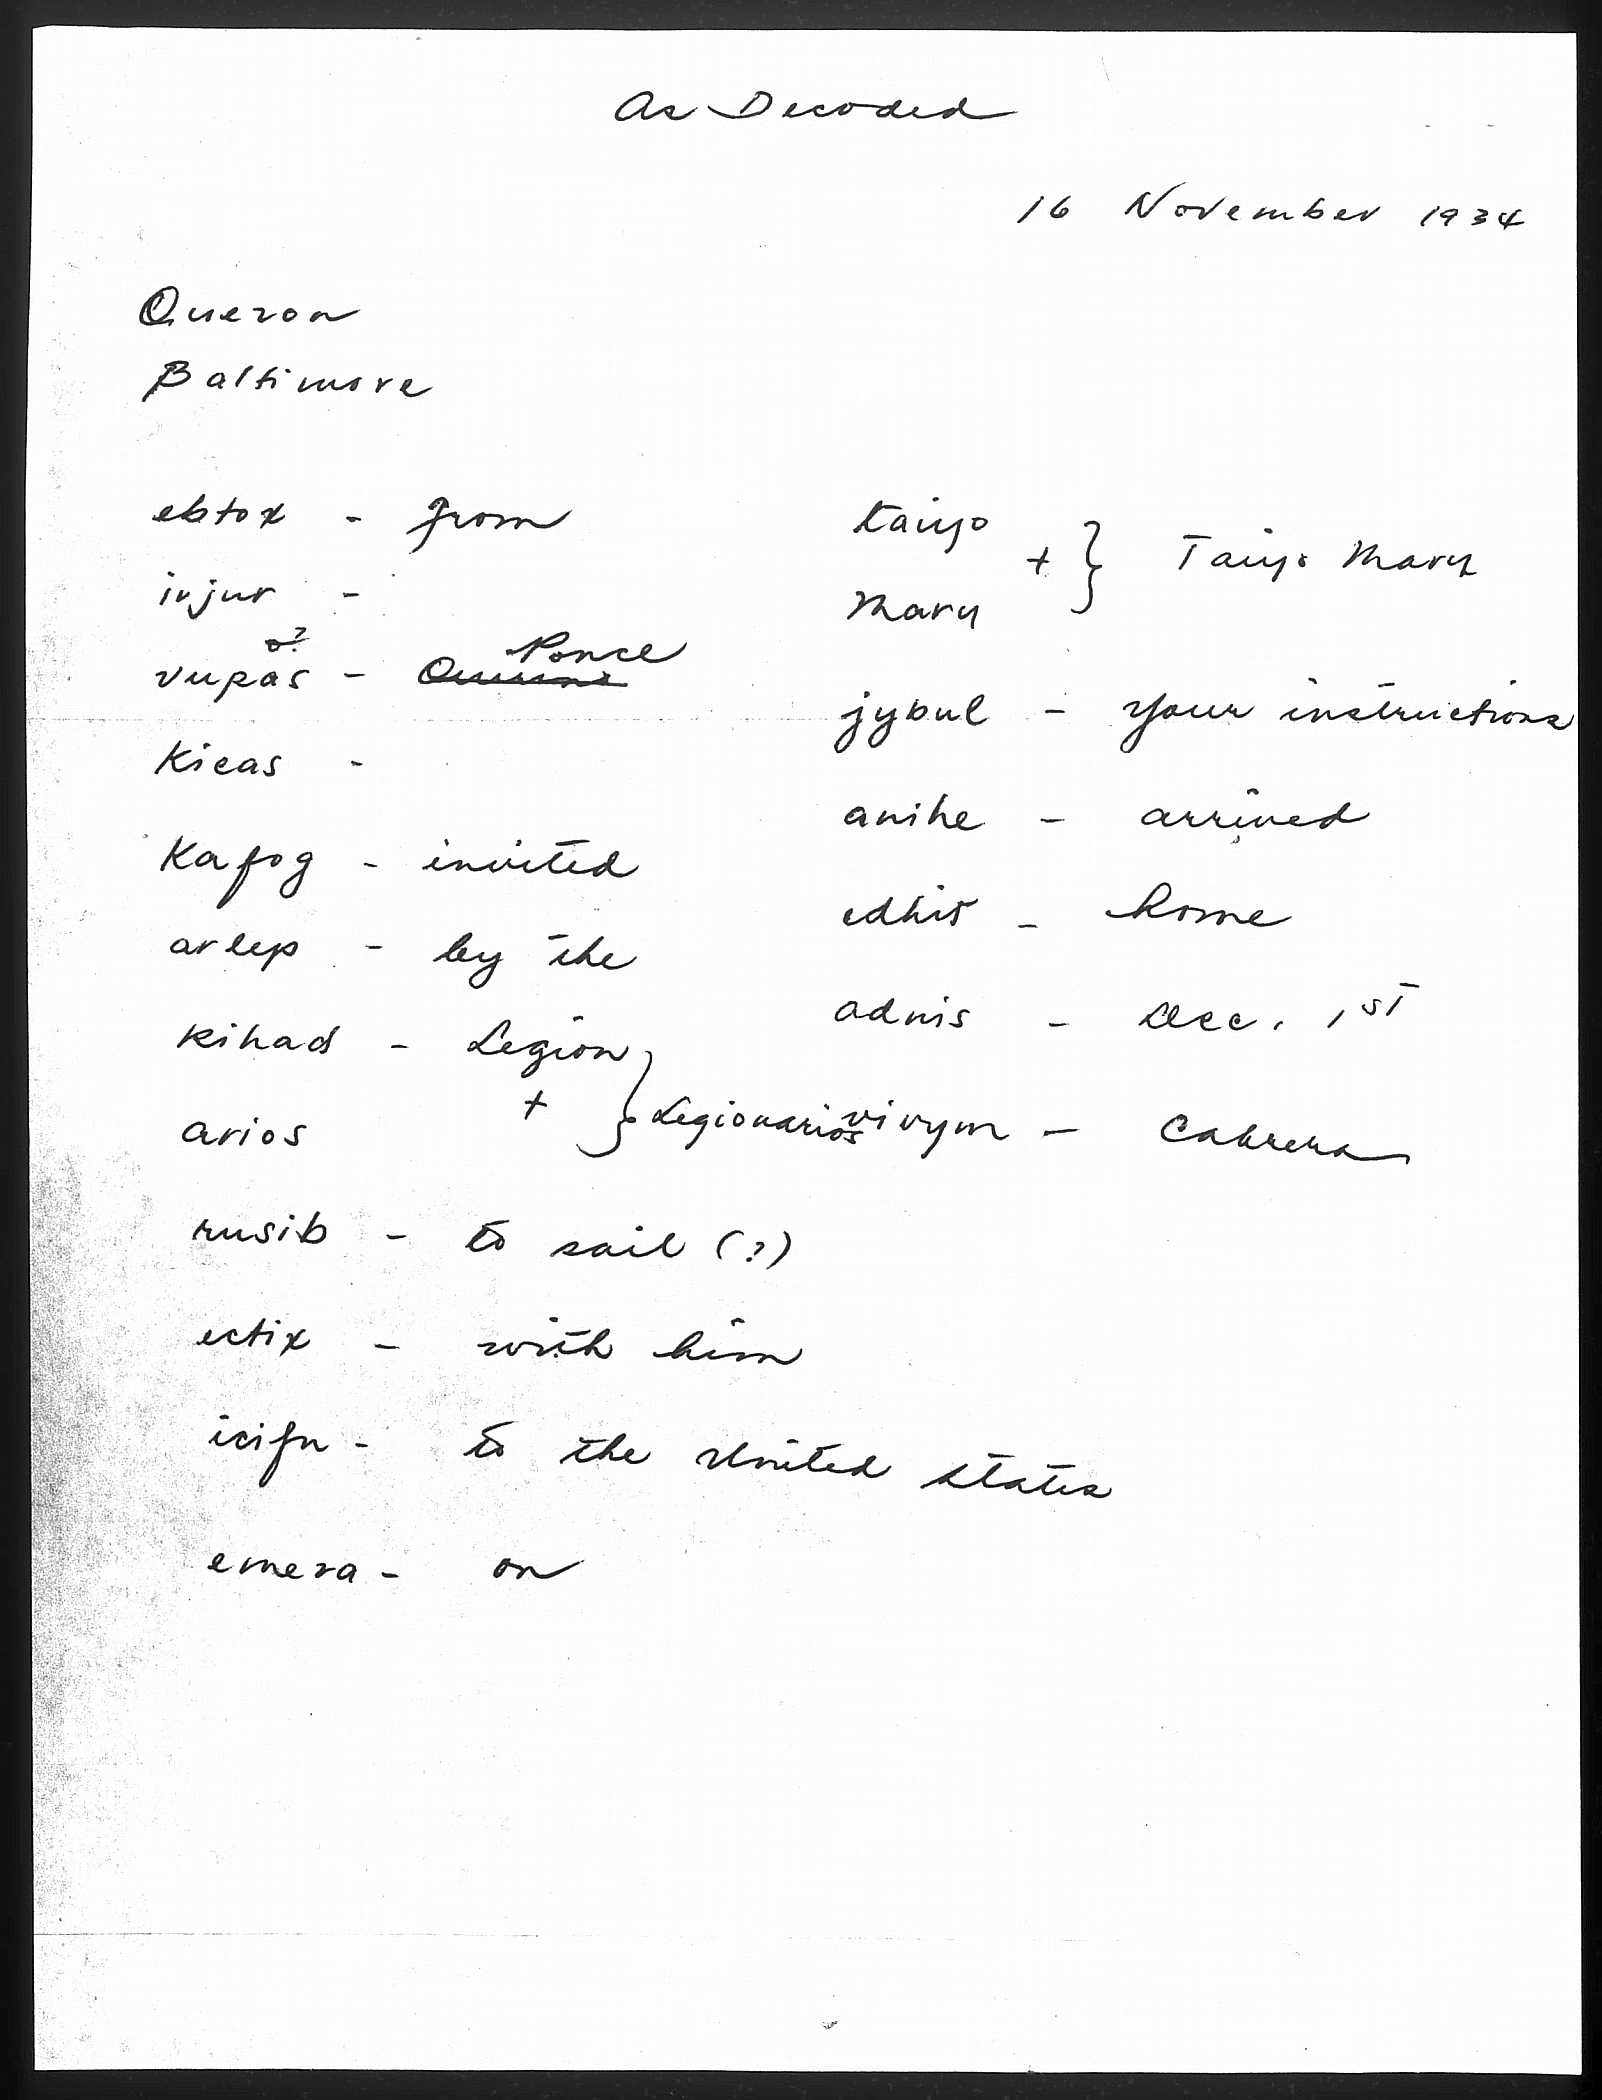 As Decoded
16 November 1934
Queron
Baltimore
ebtox - from
irjur -
o?
vupas - Ponce
Kicas -
Kafog - invited
arlep - by the
kihad - Legion
+ } Legionarios
arios
rusib - to sail (?)
ectix - with him
icifu - to the United States
emera - on
taiyo
+ } Taiyo Maru
Maru
jybul - your instructions
anihe - arrived
edhit - Rome
adnis - Dec. 1st
vivym - Cabrera